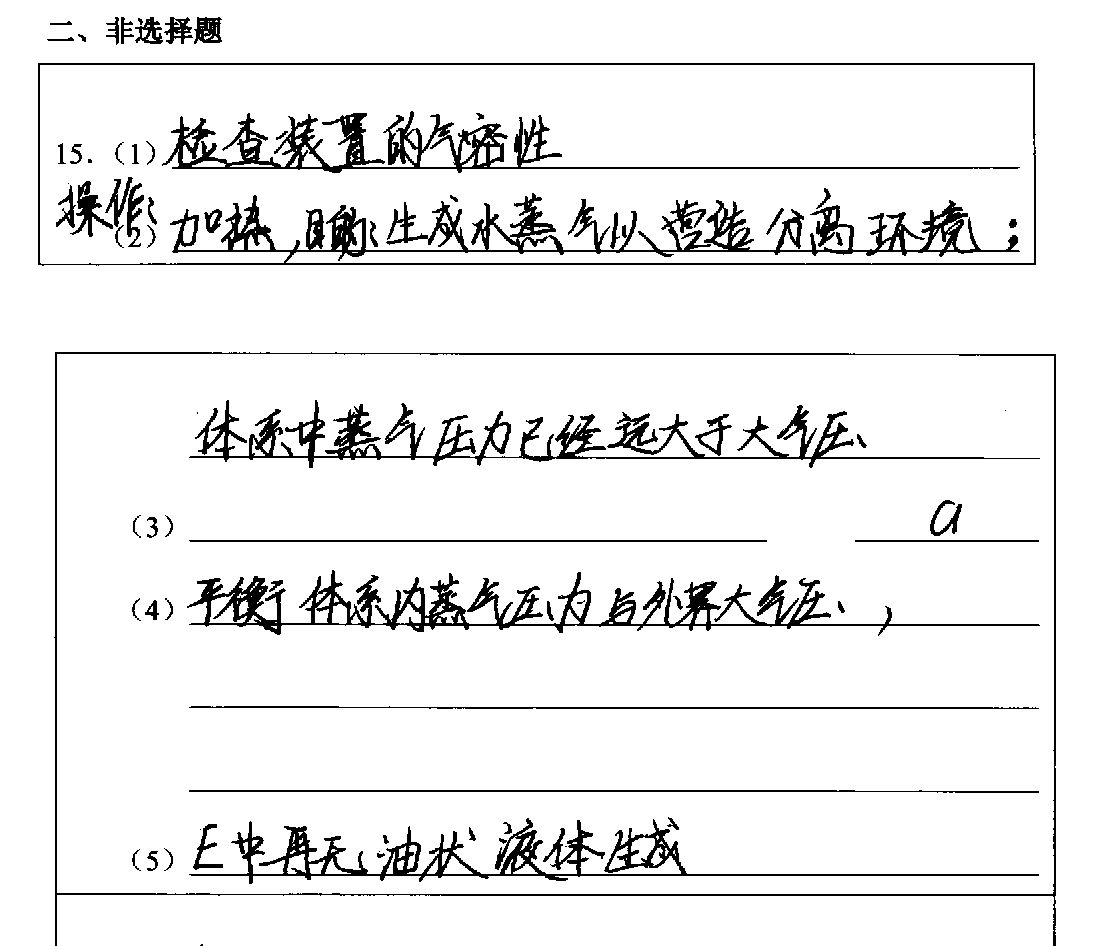 二、非选择题
15.（1）检查装置的气密性
操作:
（2）加热,目的:生成水蒸气以营造分离环境;
体系中蒸气压力已经远大于大气压、
（3） a
（4）平衡体系内蒸气压力与外界大气压、,
（5）E中再无油状液体生成